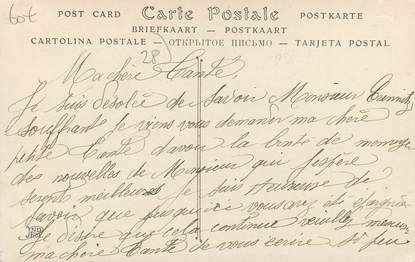 60t
POST CARD Carte Postale POSTKARTE
BRIEFKAART — POSTKAART
CARTOLINA POSTALE — ОТКРЫТОЕ ПИСЬМО — TARJETA POSTAL
28)
Ma chère Tante,
Je suis désolée de savoir Monsieur
souffrant je viens vous demander ma chère
petite Tante d'avoir la bonté de
des nouvelles de Monsieur qui j'espère
seront meilleures Je suis
savoir que jusqu'ici vous avez été
Je désire que cela continue veuillez
ma chère Tante de vous écrire si peu
ND
Phot